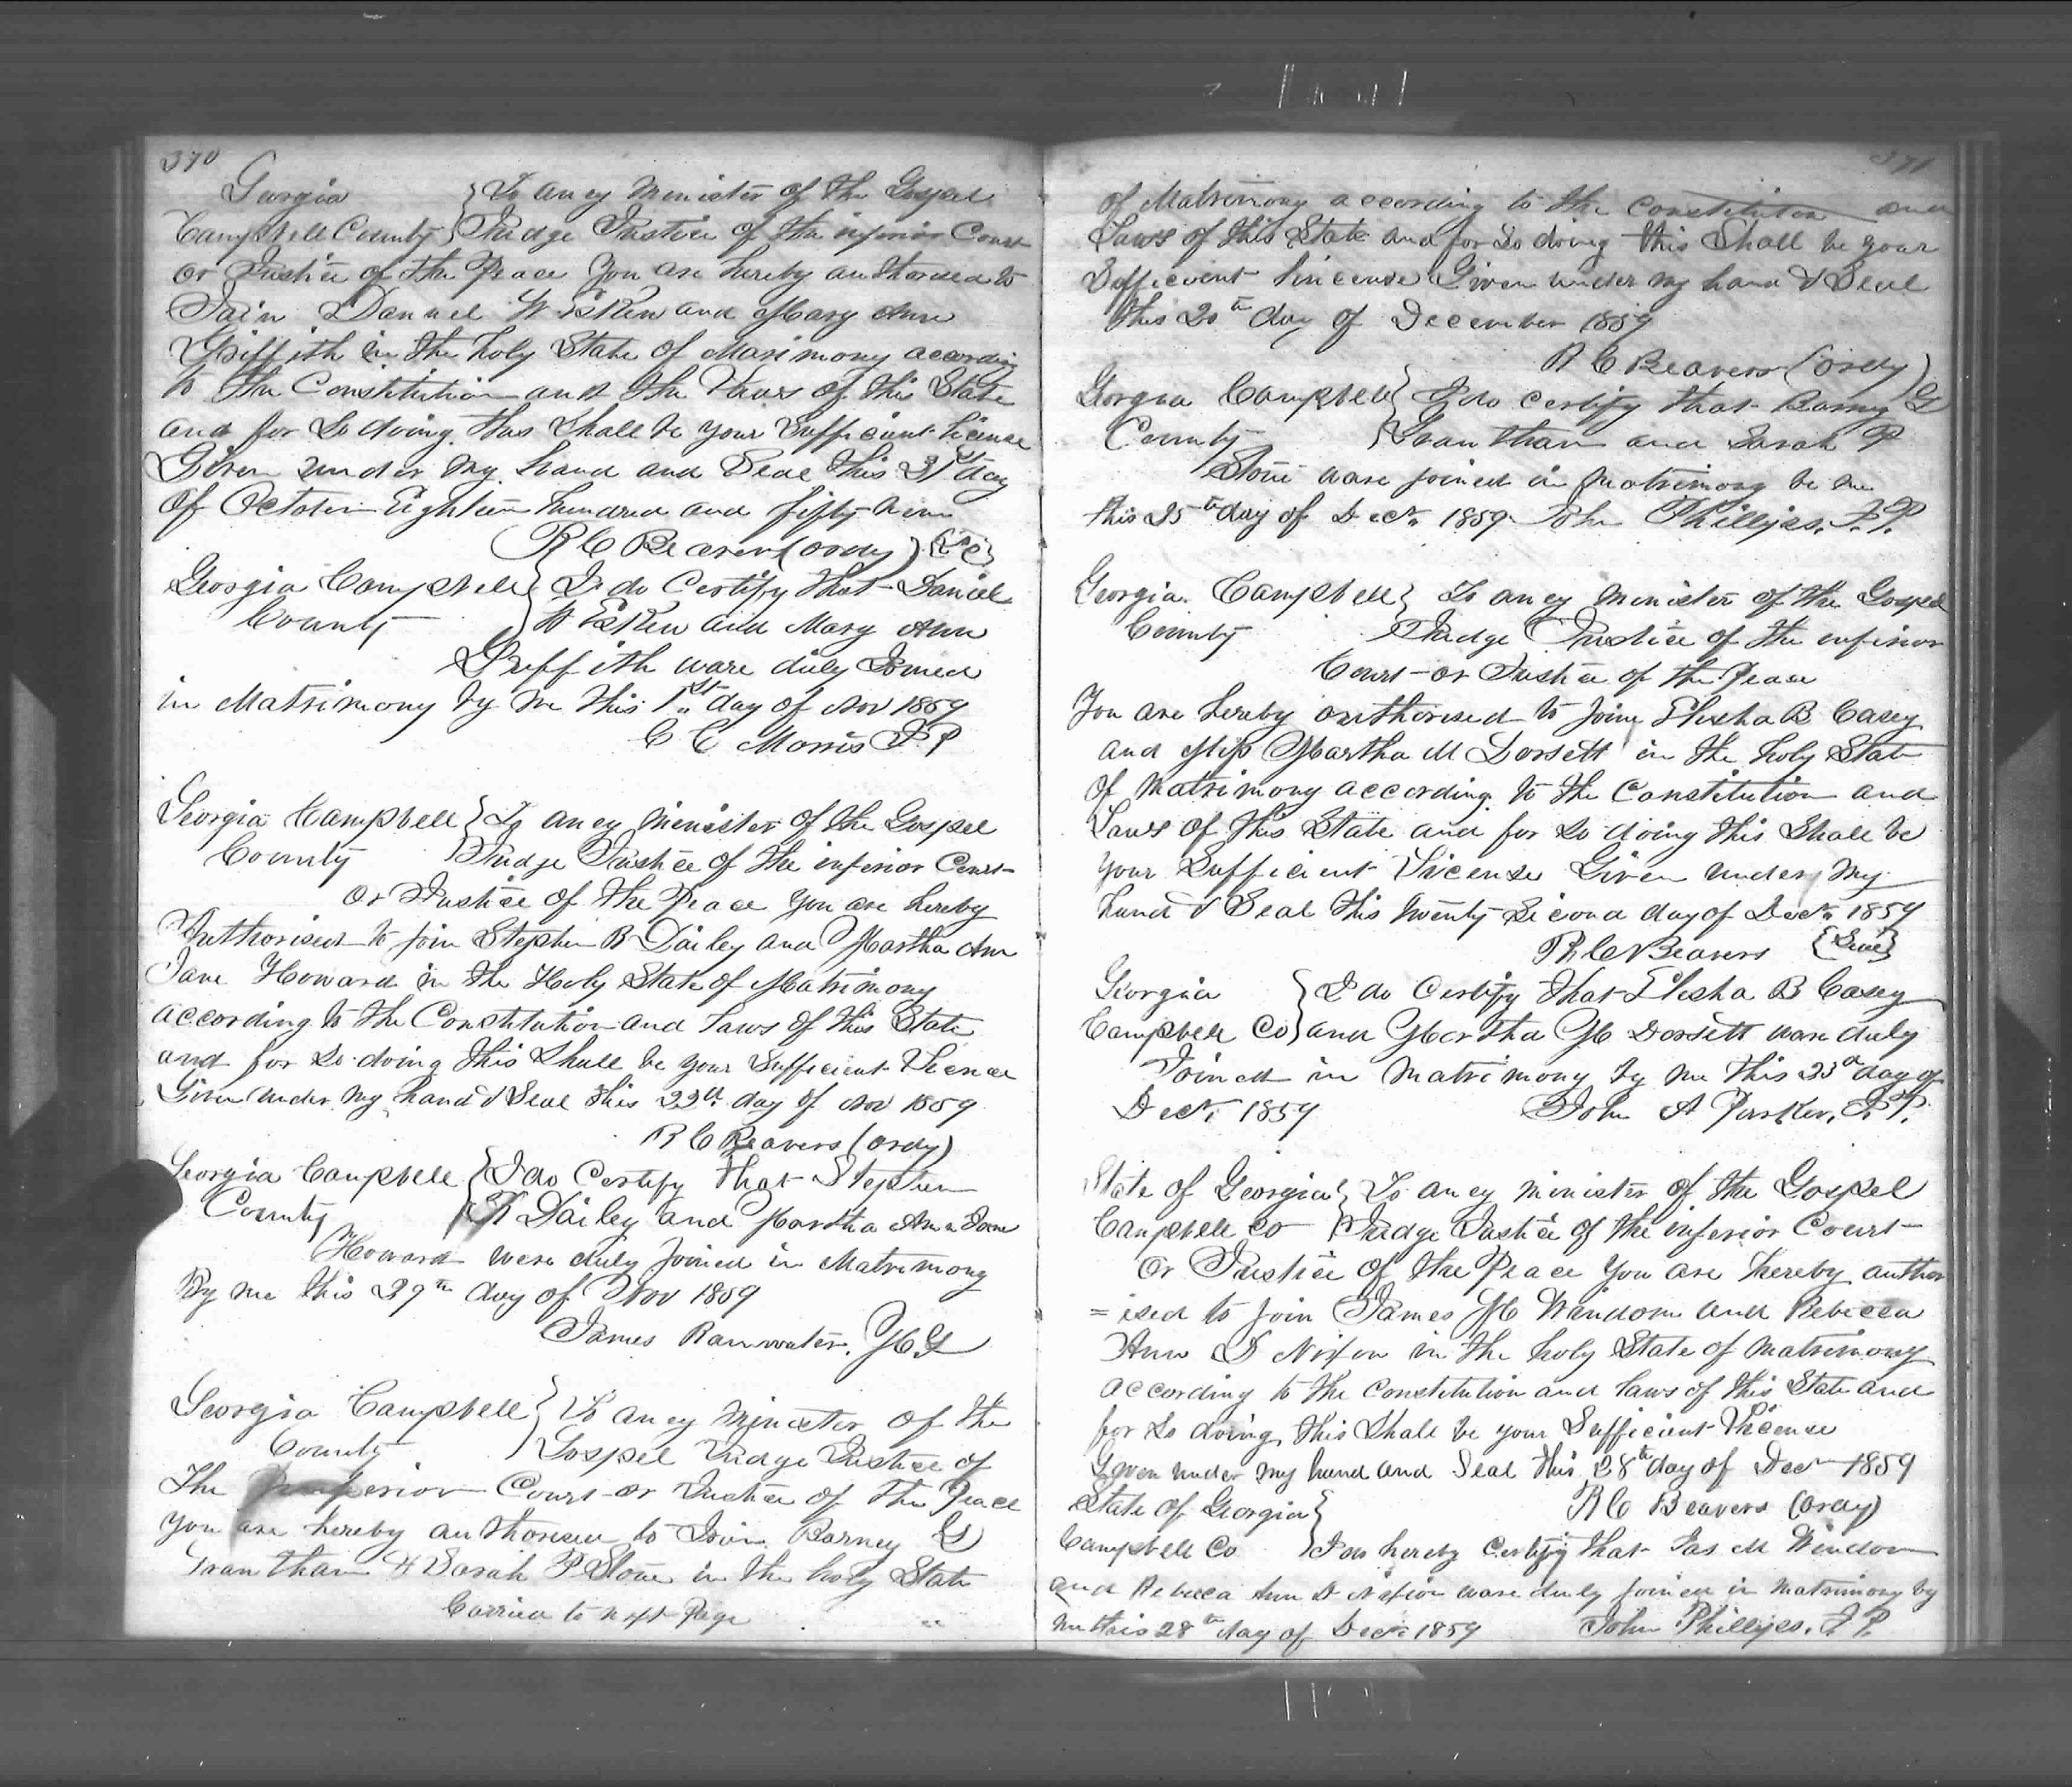 370
Georgia } To aney Minister of the Gospel
Campbell County } Judge Justice of the inferior Court
or Justice of the Peace You are hereby authorised to
Join Danuel W Eskew and Mary Ann
Griffith in the holy State of Marimony according
to the Constitution and the Laws of this State
and for So doing this Shall be your Sufficient License
Given under my hand and Seal this 31st day
of October Eighteen hundred and fifty nine
R C Beavers (ordy)
Georgia Campbell } I do Certify that Daniel
County } W Eskew and Mary Ann
Griffith ware duly Joined
in Matrimony by me this 1st day of Nov 1859
C C Morris J P
Georgia Campbell } To aney Minister of the Gospel
County } Judge Justice of the inferior Court
or Justice of the Peace You are hereby
Authorised to join Stephen B Dailey and Martha Ann
Jane Howard in the Holy State of Matrimony
according to the Constitution and Laws of this State
and for So doing this Shall be your Sufficient License
Given under my hand & Seal this 22th day of Nov 1859
R C Beavers (ordy)
Georgia Campbell } I do Certify that Stephen
County } Dailey and Martha Ann Jane
Howard were duly Joined in Matrimony
By me this 29th day of Nov 1859
James Rainwater. M G
Georgia Campbell } To aney Minister of the
County } Gospel Judge Justice of
The Court or Justice of the Peace
You are hereby authorised to Join Barney G
Grantham & Sarah P Stone in the holy State
Carried to next Page
371
of Matrimony according to the Constitution and
Laws of this State and for So doing this Shall be your
Sufficient Lincense Given under my hand & Seal
this 20th day of December 1859
R C Beavers (ordy)
Gorgia Campbell } I do certify that Barney G
County } Grantham and Sarah P
Stone ware joined in Matrimony be me
this 25th day of Decr 1859 John Phillips. J. P.
Georgia. Campbell } To aney Minister of the Gospel
County Judge Justice of the inferior
Court or Justice of the Peace
You are hereby authorised to Join Elisha B Casey
and Miss Martha M Dorsett in the holy State
of Matrimony according to the Constitution and
Laws of this State and for So doing this Shall be
your Sufficient License Given under my
hand & Seal this twenty Second day of Decr 1859
R C Beavers {Seal}
Georgia } I do Certify that Elisha B Casey
Campbell Co } and Martha M Dorsett ware duly
Joined in Matrimony by me this 23d day of
Decr 1859 John A Parker, J. P.
State of Georgia } To aney Minister of the Gospel
Campbell Co } Judge Justice of the inferior Court
Or Justice of the Peace You are hereby author
=ised to join James M Windom and Rebecca
Ann D Nixon in the holy State of Matrimony
according to the Constitution and Laws of this State and
for So doing this Shall be your Sufficient License
Given under my hand and Seal this 28th day of Decr 1859
State of Georgia } R C Beavers (ordy)
Campbell Co } I do hereby Certify that Jas M Windom
and Rebecca Ann D Nixion ware duly joined in Matrimony by
me this 28th day of Decr 1859 John Phillips. J. P.